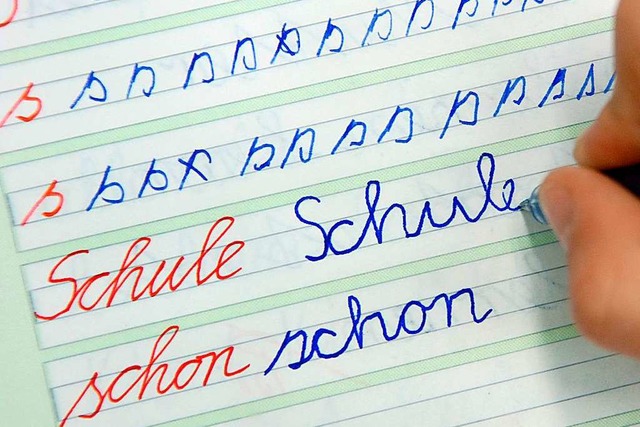 s s s s s s s s s s s s
s s s s s s s s s s s s s
Schule Schule
schon schon